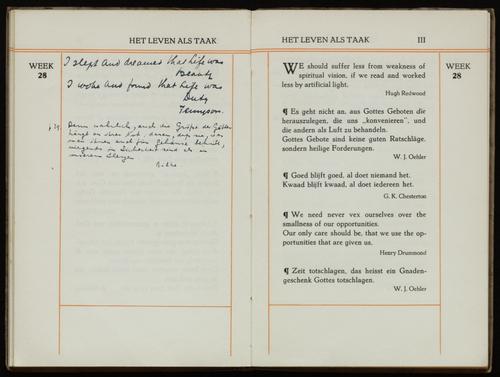 HET LEVEN ALS TAAK
WEEK
28
I slept and dreamed that Life was
Beauty
I woke and found that Life was
Duty
Tennyson.
Denn natürlich, auch die
hängt an
wir
unserem
HET LEVEN ALS TAAK III
WEEK
28
WE should suffer less from weakness of
spiritual vision, if we read and worked
less by artificial light.
Hugh Redwood
¶ Es geht nicht an, aus Gottes Geboten die
herauszulegen, die uns „konvenieren”, und
die andern als Luft zu behandeln.
Gottes Gebote sind keine guten Ratschläge.
sondern heilige Forderungen.
W. J. Oehler
¶ Goed blijft goed, al doet niemand het.
Kwaad blijft kwaad, al doet iedereen het.
G. K. Chesterton
¶ We need never vex ourselves over the
smallness of our opportunities.
Our only care should be, that we use the op-
portunities that are given us.
Henry Drummond
¶ Zeit totschlagen, das heisst ein Gnaden-
geschenk Gottes totschlagen.
W. J. Oehler